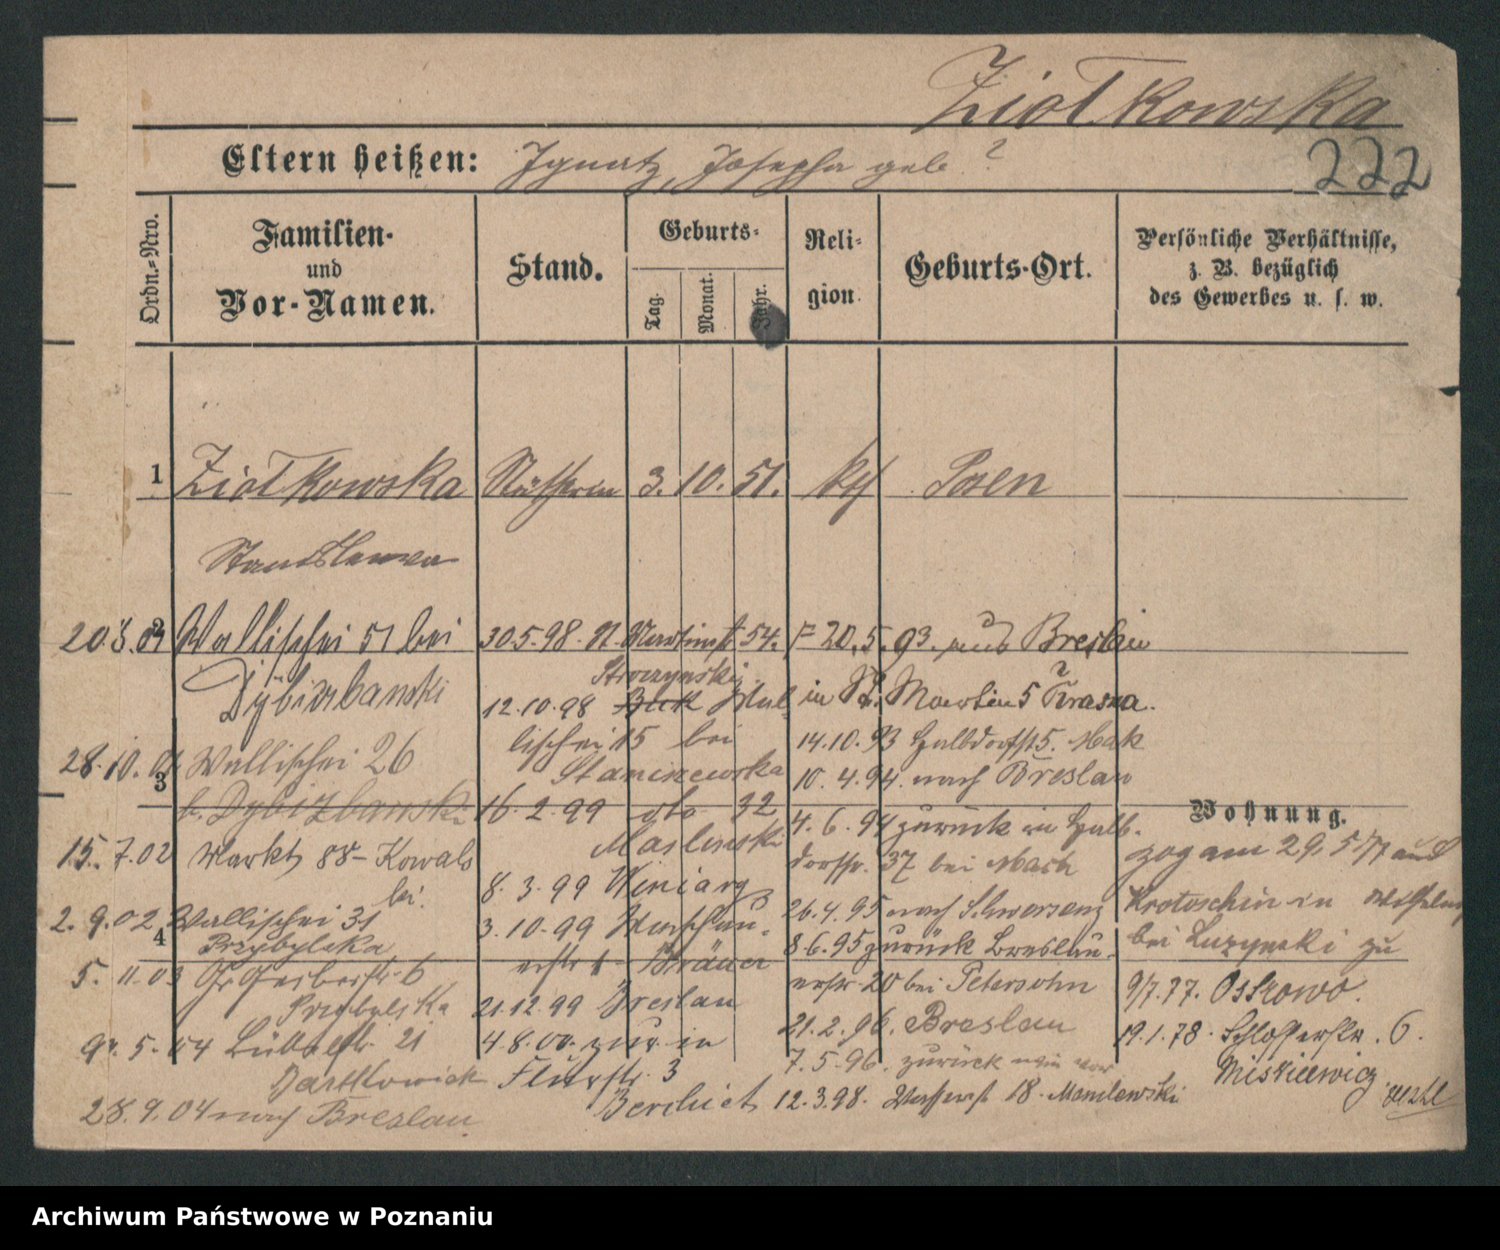 Ziolkowska
Eltern heißen: Ignatz, Josepha geb ?
222
Ordn.-Nro.
Familien- und Vor-Namen.
Stand.
Geburts-
Tag.
Monat.
Jahr.
Religion
Geburts-Ort.
Persönliche Verhältnisse,
z. B. bezüglich
des Gewerbes u. s. w.
1 Ziolkowska 3. 10. 51. Posen
Stanislawa
2
Wallischei 51 bei
28.10.
3
Wallischei 26
b.
15.7.02 Markt 88 - Kowals
bei.
2.9.02 Wallischei 31
4
Przybylska
5.11.03 Gr. Gerberstr. 6
Przybylska
9.5.04 21
Bartkowiak
28.9.04 nach Breslau.
30.5.98. St. Martinst 54.
Stroczynski
12.10.98 Wal-
lischei 15 bei
Staniszewska
16.2.99 dto 32
Maslinski
8.3.99 Winiary
3.10.99
Bräuer
21.12.99 Breslau
4.8.00. zur. in
Flurstr. 3
20.5.93. aus Breslau
in St. Martin 5
14.10.93 Halbdorfst 5.
10.4.94. nach Breslau
4.6.94 zurück in Halb-
dorfstr. 37 bei
26.4.95 nach Schwersenz
8.6.95 zurück Breslau-
erstr 20 bei Petersohn
21.2.96. Breslau
7.5.96. zurück
12.3.98. Wasserst 18.
Wohnung.
zog am 29.5.77 aus
Krotoschin in
bei zu
9/7.77. Ostrowo.
19.1.78. Schlosserstr. 6.
Miskiewicz
Archiwum Państwowe w Poznaniu